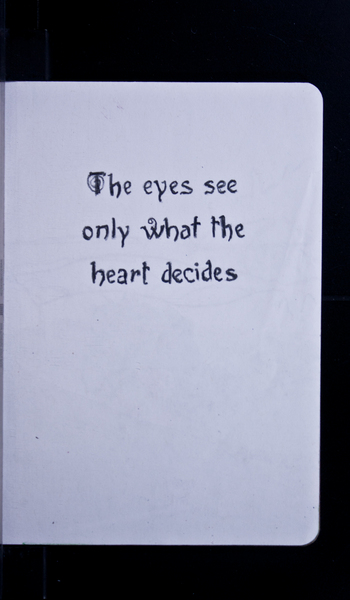 The eyes see
only what the
heart decides